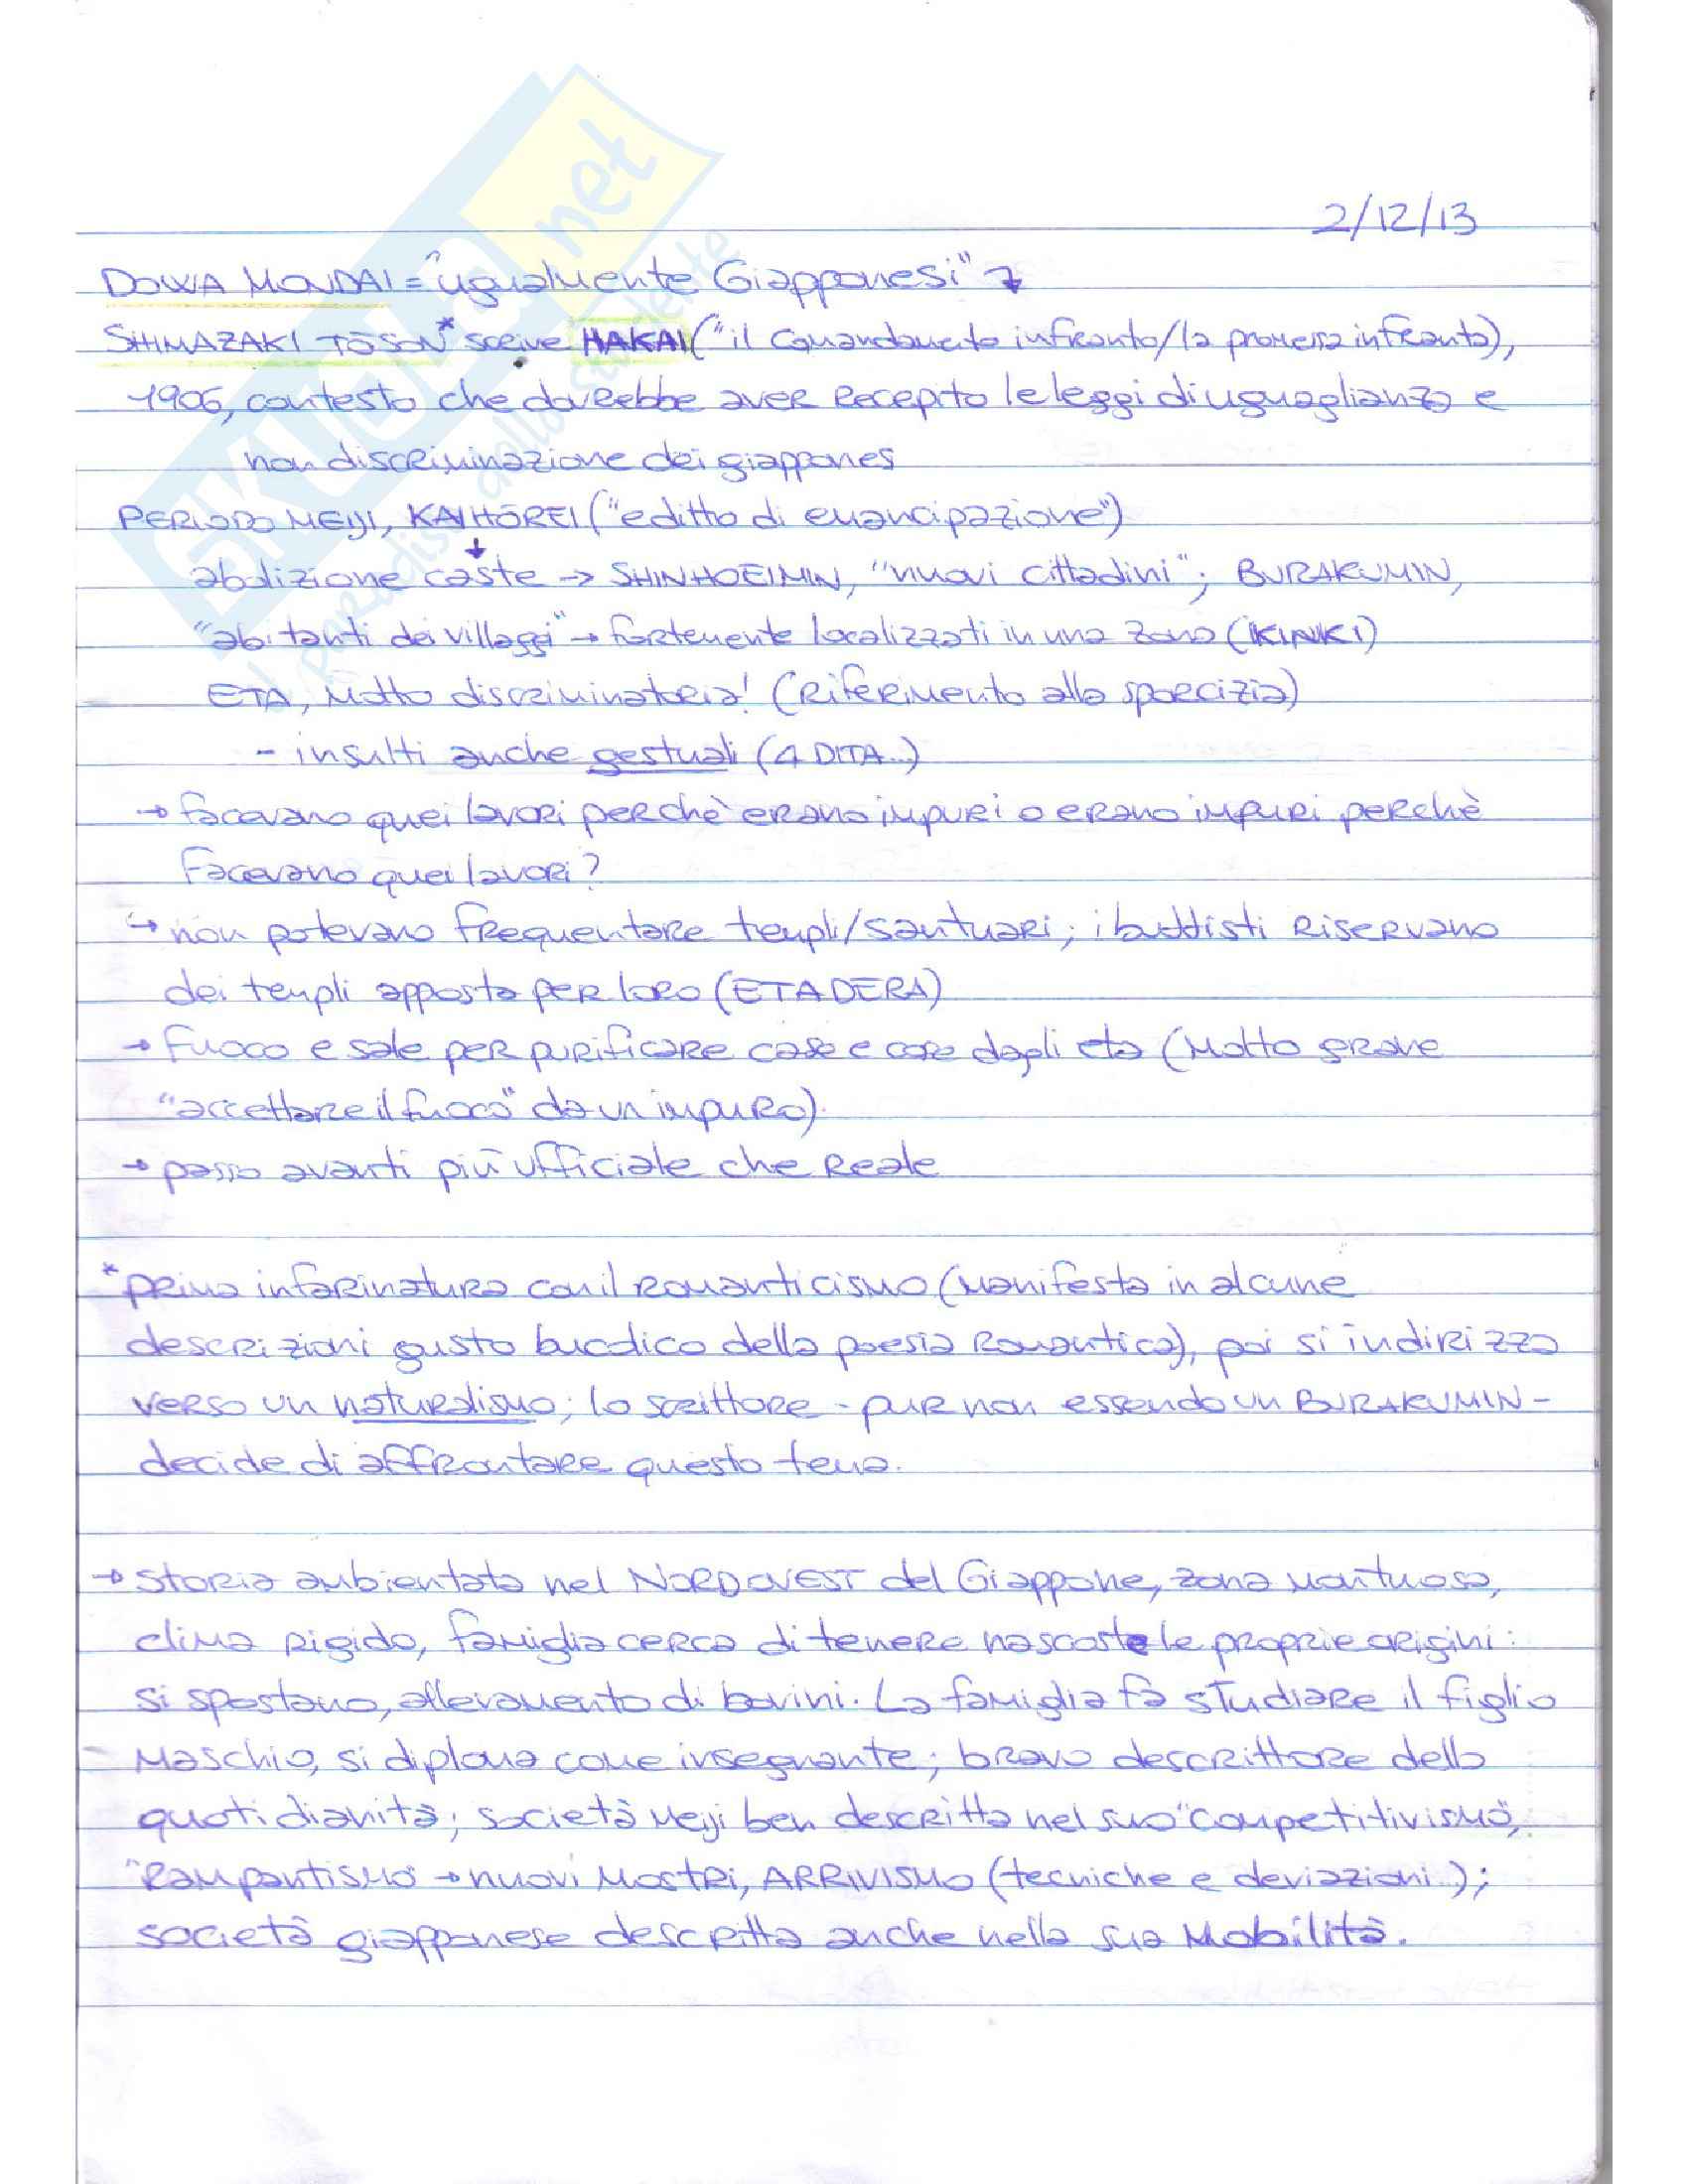 2/12/13
DOWA MONDAI = "ugualmente Giapponesi" ↴
SHIMAZAKI TŌSON* scrive HAKAI ("il comandamento infranto/la promessa infranta),
1906, contesto che dovrebbe aver recepito le leggi di uguaglianza e
non discriminazione dei giappones
PERIODO MEIJI, KAIHŌREI ("editto di emancipazione")
↓
abolizione caste → SHINHOEIMIN, "nuovi cittadini"; BURAKUMIN,
"abitanti dei villaggi" → fortemente localizzati in una zona (KINKI)
ETA, molto discriminatoria! (riferimento alla sporcizia)
- insulti anche gestuali (4 DITA...)
→ facevano quei lavori perchè erano impuri o erano impuri perchè
facevano quei lavori?
↳ non potevano frequentare templi/santuari; i buddisti riservano
dei templi apposta per loro (ETADERA)
→ fuoco e sale per purificare case e cose dagli eta (molto grave
"accettare il fuoco" da un impuro).
→ passo avanti più ufficiale che reale
*prima infarinatura con il romanticismo (manifesta in alcune
descrizioni gusto bucolico della poesia romantica), poi si indirizza
verso un naturalismo; lo scrittore - pur non essendo un BURAKUMIN -
decide di affrontare questo tema.
→ storia ambientata nel NORDOVEST del Giappone, zona montuosa,
clima rigido, famiglia cerca di tenere nascoste le proprie origini:
si spostano, allevamento di bovini. La famiglia fa studiare il figlio
maschio, si diploma come insegnante; bravo descrittore della
quotidianità; società Meiji ben descritta nel suo "competitivismo",
"rampantismo" → nuovi mostri, ARRIVISMO (tecniche e deviazioni...);
società giapponese descritta anche nella sua mobilità.
SKUOLA.net
il paradiso dello studente